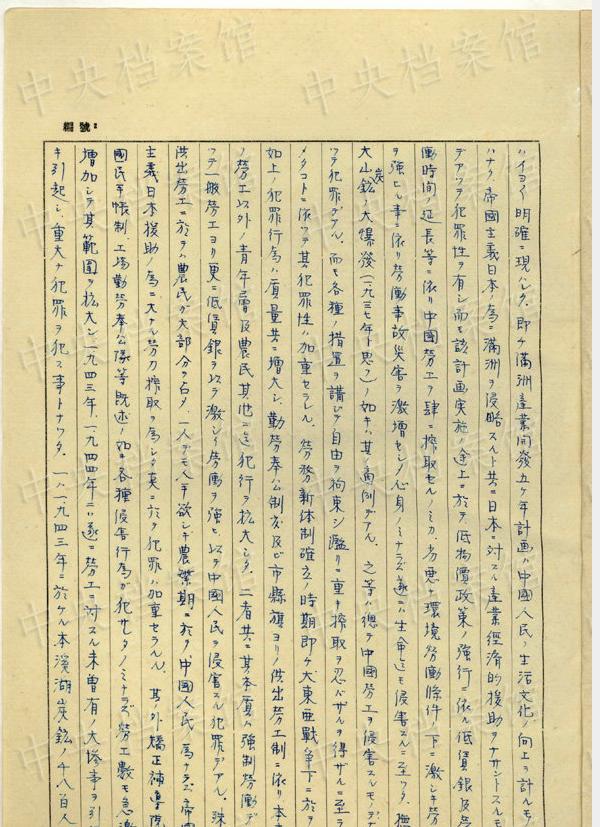 中央档案馆
中央档案馆
編號:
ハイヨイヨ明確ニ現ハレタ。即チ満洲産業開発五ケ年計画ハ中國人民ノ生活文化ノ向上ヲ計ルモ
ハナク、帝國主義日本ノ為ニ満洲ヲ侵略スルト共ニ日本ニ対スル産業經濟的援助ヲナサントスルモ
デアツテ犯罪性ヲ有シ而モ該計画実施ノ途上ニ於テ低物價政策ノ強行ニ依ル低賃銀及労
働時間ノ延長等ニ依リ中國労工ヲ肆ニ搾取セルノミカ、劣悪ナ環境労働條件ノ下ニ激シキ労
ヲ強ヒル事ニ依リ労働事故災害ヲ激増セシメ心身ノミナラズ遂ニハ生命迄モ侵害スルニ至ツタ。撫
大山炭鉱ノ大爆發(一九三七年ト思フ)ノ如キハ其ノ高例デアル。之等ハ總テ中國労工ヲ侵害スルモノデ
ツテ犯罪デアル。而モ各種ノ措置ヲ講ジテ自由ヲ拘束シ濫リニ重キ搾取ヲ忍バザルヲ得ザルニ至ラ
メタコトニ依ツテ其犯罪性ハ加重セラレル。労務新体制確立ノ時期即チ大東亜戰争下ニ於テ
如上ノ犯罪行為ハ質量共ニ増大シ、勤労奉公制度及ビ市縣旗ヨリノ供出労工制ニ依リ本
ノ労工以外ノ青年層及農民其他ニ迄犯行ヲ拡大シタ。二者共ニ其本質ハ強制労働デ
ツテ一般労工ヨリ更ニ低賃銀ヲ以テ激シイ労働ヲ強ヒ以テ中國人民ヲ侵害スル犯罪デアル。殊
供出労工ニ於テハ農民ガ大部分ヲ占メ一人デモ人手ヲ欲シキ農繁期ニ於テ、中國人民ノ為ナラズ帝
主義日本援助ノ為ニ大ナル労力搾取ヲ為シタ実ニ於テ犯罪ハ加重セラルル。其ノ外矯正補導院
國民手帳制工場勤労奉公隊等既述ノ如キ各種侵害行為ガ犯サレタノミナラズ労工数モ急激
増加シテ其範圍ヲ拡大シ一九四三年、一九四四年ニハ遂ニ労工ニ対スル未曽有ノ大惨事ヲ引
キ引起シ、重大ナ犯罪ヲ犯ス事トナツタ。一ハ一九四三年ニ於ケル本溪湖炭鉱ノ千八百人